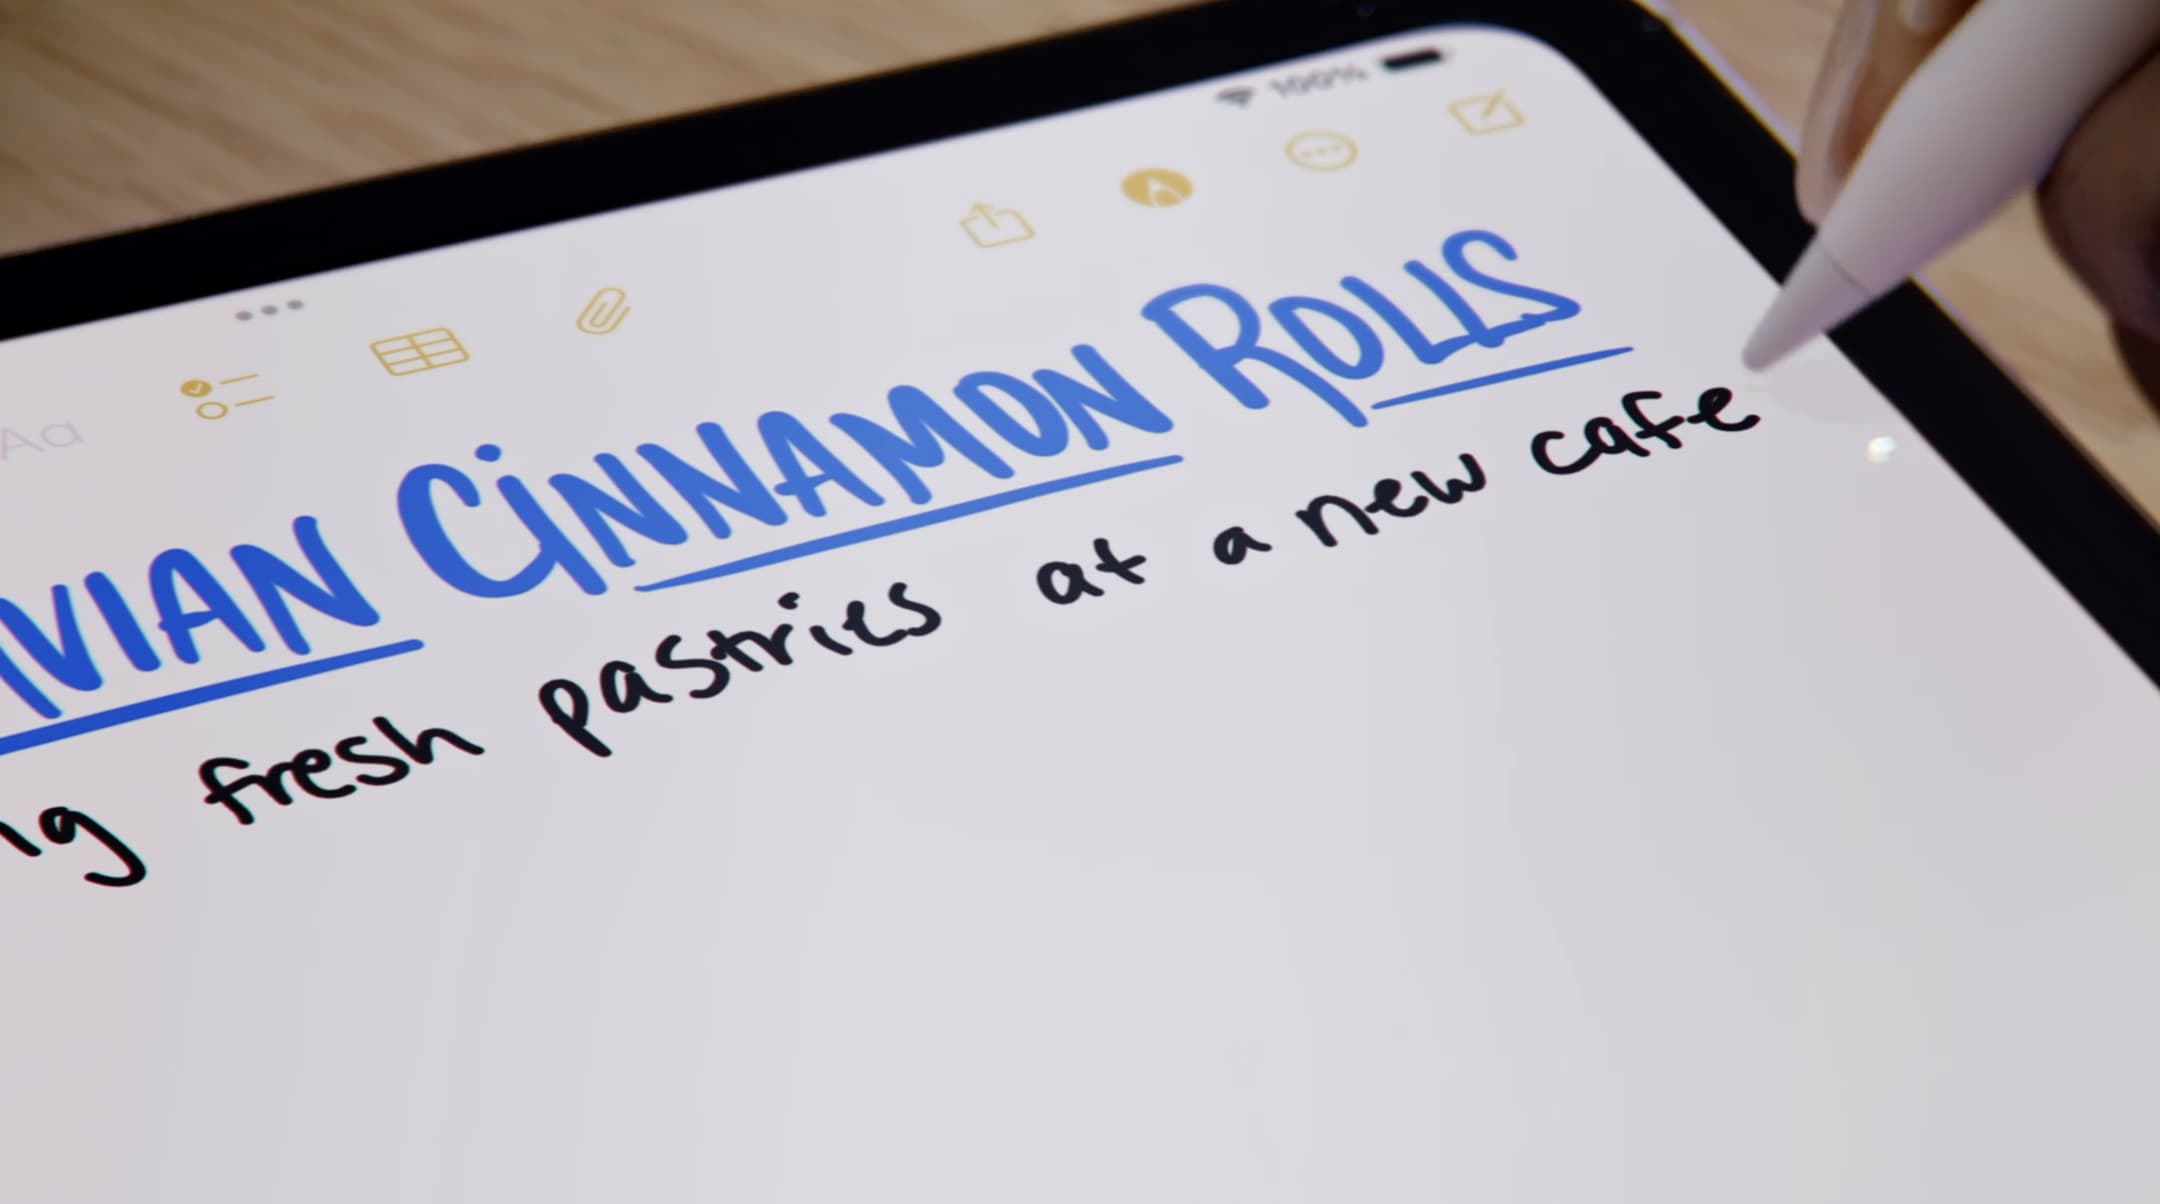 100%
Aa
VIAN CINNAMON ROLLS
fresh pastries at a new cafe